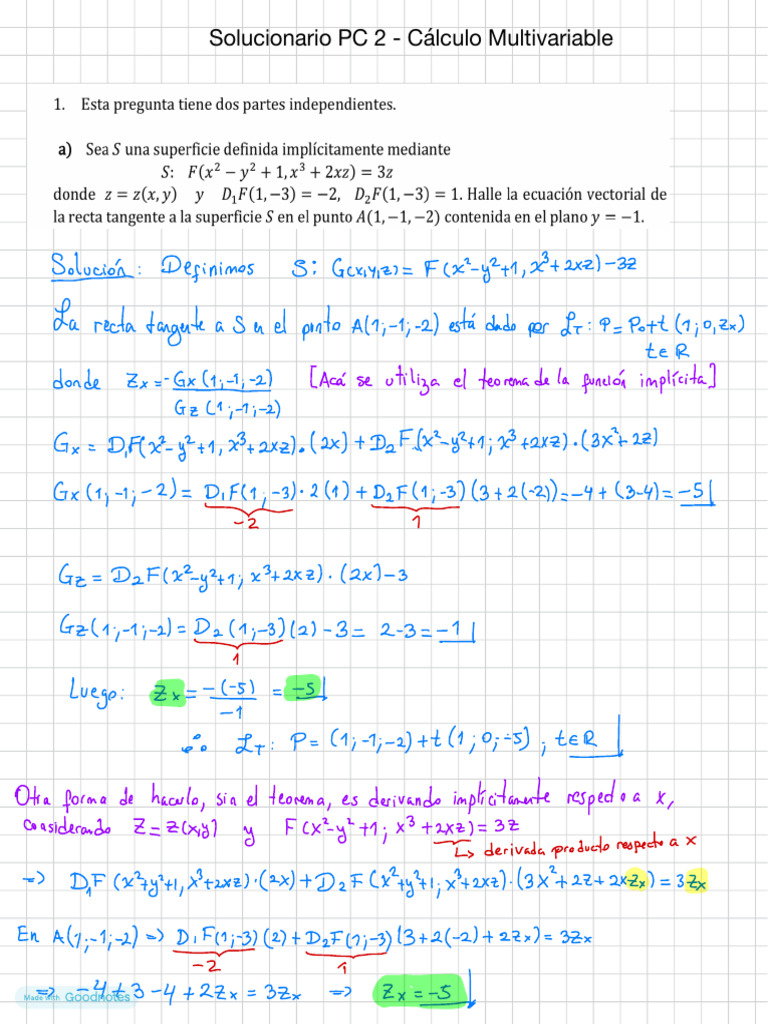 Solucionario PC 2 - Cálculo Multivariable
1. Esta pregunta tiene dos partes independientes.
a) Sea S una superficie definida implícitamente mediante
S: F(x² − y² + 1, x³ + 2xz) = 3z
donde z = z(x, y) y D₁F(1, −3) = −2, D₂F(1, −3) = 1. Halle la ecuación vectorial de
la recta tangente a la superficie S en el punto A(1, −1, −2) contenida en el plano y = −1.
Solución: Definimos S: G(x,y,z) = F(x²-y²+1, x³+2xz)-3z
La recta tangente a S en el punto A(1;-1;-2) está dado por 𝓛T: P = P₀+t(1;0,Zx)
t∈R
donde Zx = -Gx(1;-1,-2) [Acá se utiliza el teorema de la función implícita]
Gz(1;-1;-2)
Gx = D₁F(x²-y²+1, x³+2xz).(2x)+D₂F(x²-y²+1; x³+2xz).(3x²+2z)
Gx(1;-1;-2) = D₁F(1,-3).2(1)+D₂F(1;-3)(3+2(-2))=-4+(3-4)=-5
-2 1
Gz = D₂F(x²-y²+1; x³+2xz).(2x)-3
Gz(1;-1;-2) = D₂(1;-3)(2)-3 = 2-3 = -1
1
Luego: Zx = -(-5) = -5
-1
∴ 𝓛T: P = (1;-1;-2)+t(1;0;-5); t∈R
Otra forma de hacerlo, sin el teorema, es derivando implícitamente respecto a x,
considerando Z=Z(x,y) y F(x²-y²+1; x³+2xz)=3z
↳ derivada producto respecto a x
=> D₁F(x²+y²+1, x³+2xz).(2x)+D₂F(x²+y²+1; x³+2xz).(3x²+2z+2xZx)=3Zx
En A(1;-1;-2) => D₁F(1;-3)(2)+D₂F(1;-3)(3+2(-2)+2Zx)=3Zx
-2 1
=> -4+3-4+2Zx = 3Zx => Zx = -5
Made with Goodnotes